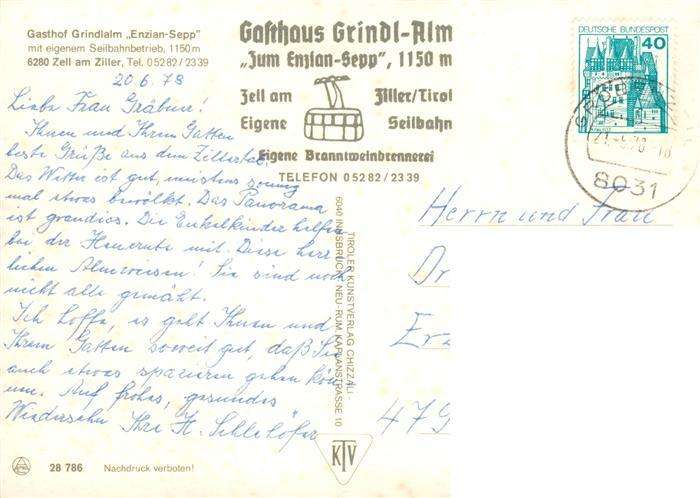 Gasthof Grindlalm „Enzian-Sepp"
mit eigenem Seilbahnbetrieb, 1150 m
6280 Zell am Ziller, Tel. 05282/2339
Gasthaus Grindl-Alm
„Zum Enzian-Sepp", 1150 m
Zell am Ziller/Tirol
Eigene Seilbahn
Eigene Branntweinbrennerei
TELEFON 05282/2339
20.6.78
Liebe Frau Gräbner!
Ihnen und Ihrem Gatten
beste Grüße aus dem Zillertal.
Das Wetter ist gut, meistens sonnig
mal etwas bewölkt. Das Panorama
ist grandios. Die Enkelkinder helfen
bei der Heuernte mit. Diese herr-
lichen Almwiesen! Sie sind noch
nicht alle gemäht.
Ich hoffe, es geht Ihnen und
Ihrem Gatten soweit gut, daß Sie
auch etwas spazieren gehen kön
nen. Auf frohes, gesundes
Wiedersehn Ihre H. Schlehöfer
DEUTSCHE BUNDESPOST
40
8031
Herrn und Frau
Dr
Erz
479
TIROLER KUNSTVERLAG CHIZZALI
6040 INNSBRUCK - NEU-RUM, KAPLANSTRASSE 10
KTV
28 786 Nachdruck verboten!